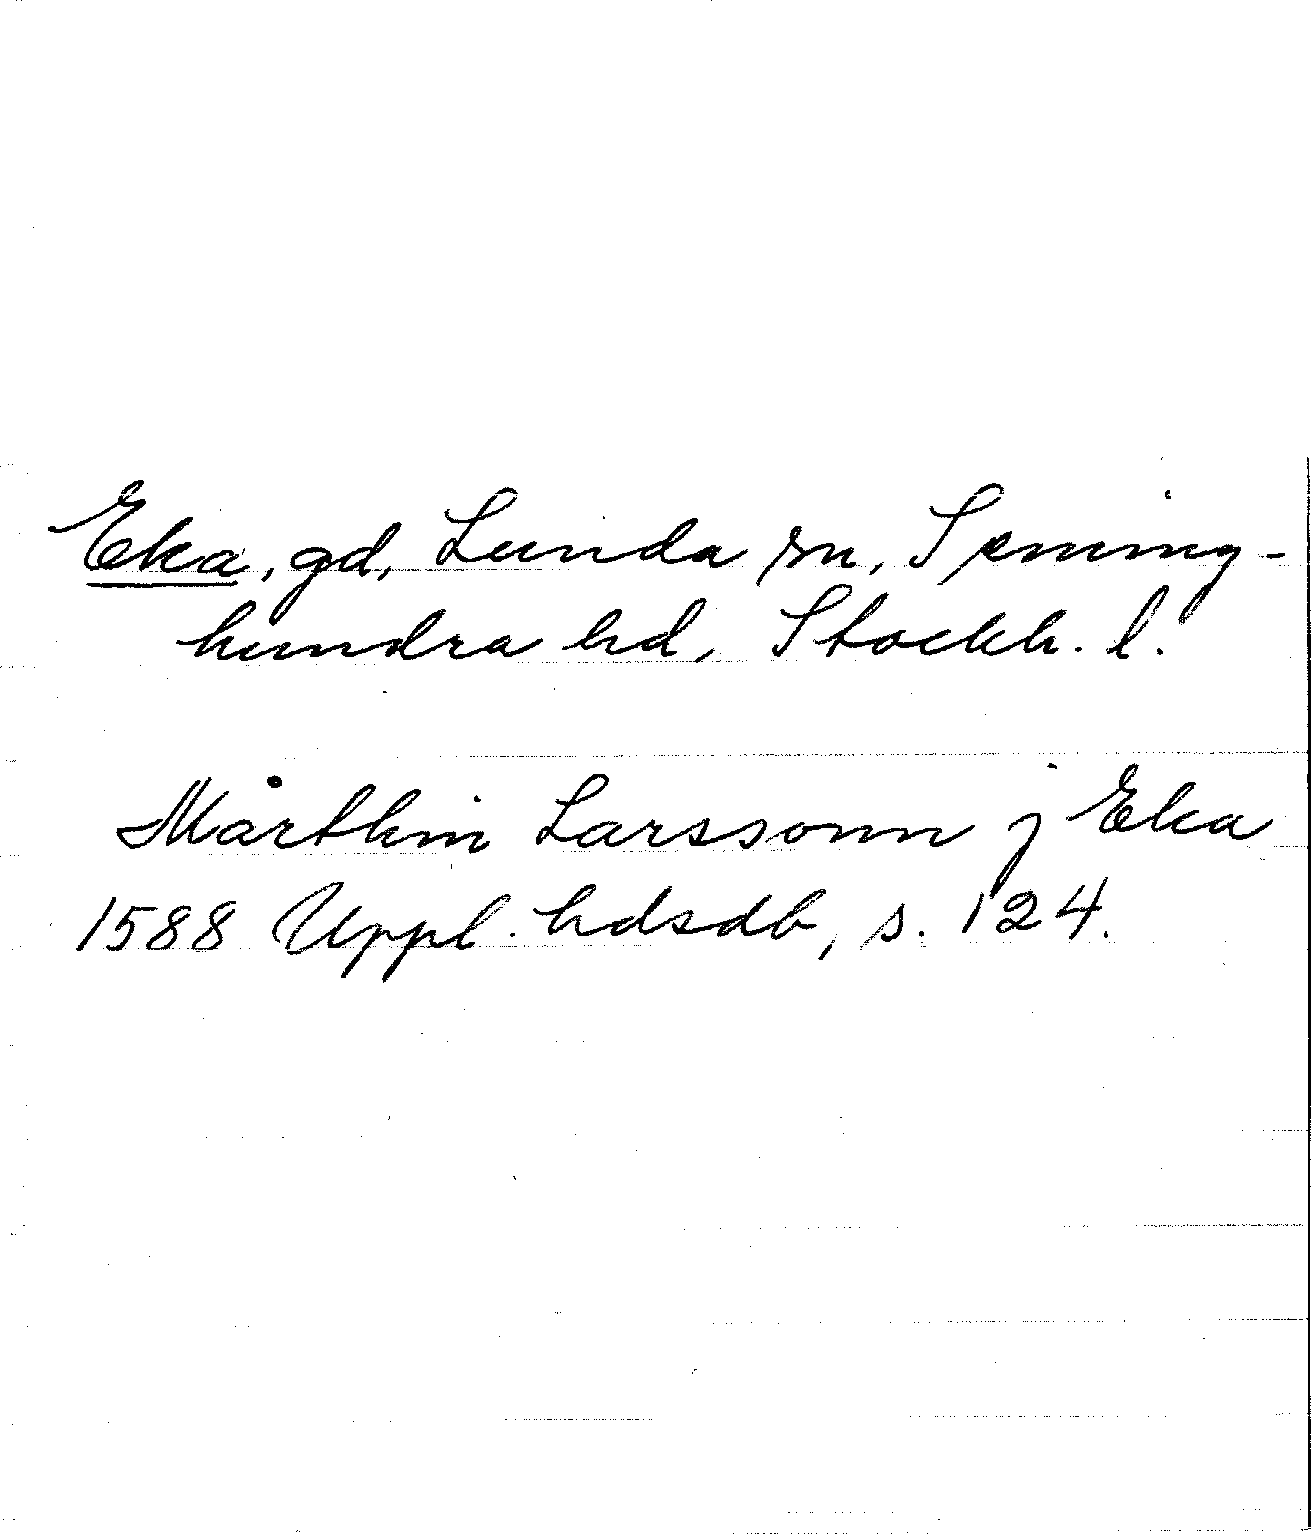 Eka, gd, Lunda sn, Seming-
hundra hd, Stockh. l.
Mårthin Larssonn j Eka
1588 Uppl. hdsdb, s. 124.